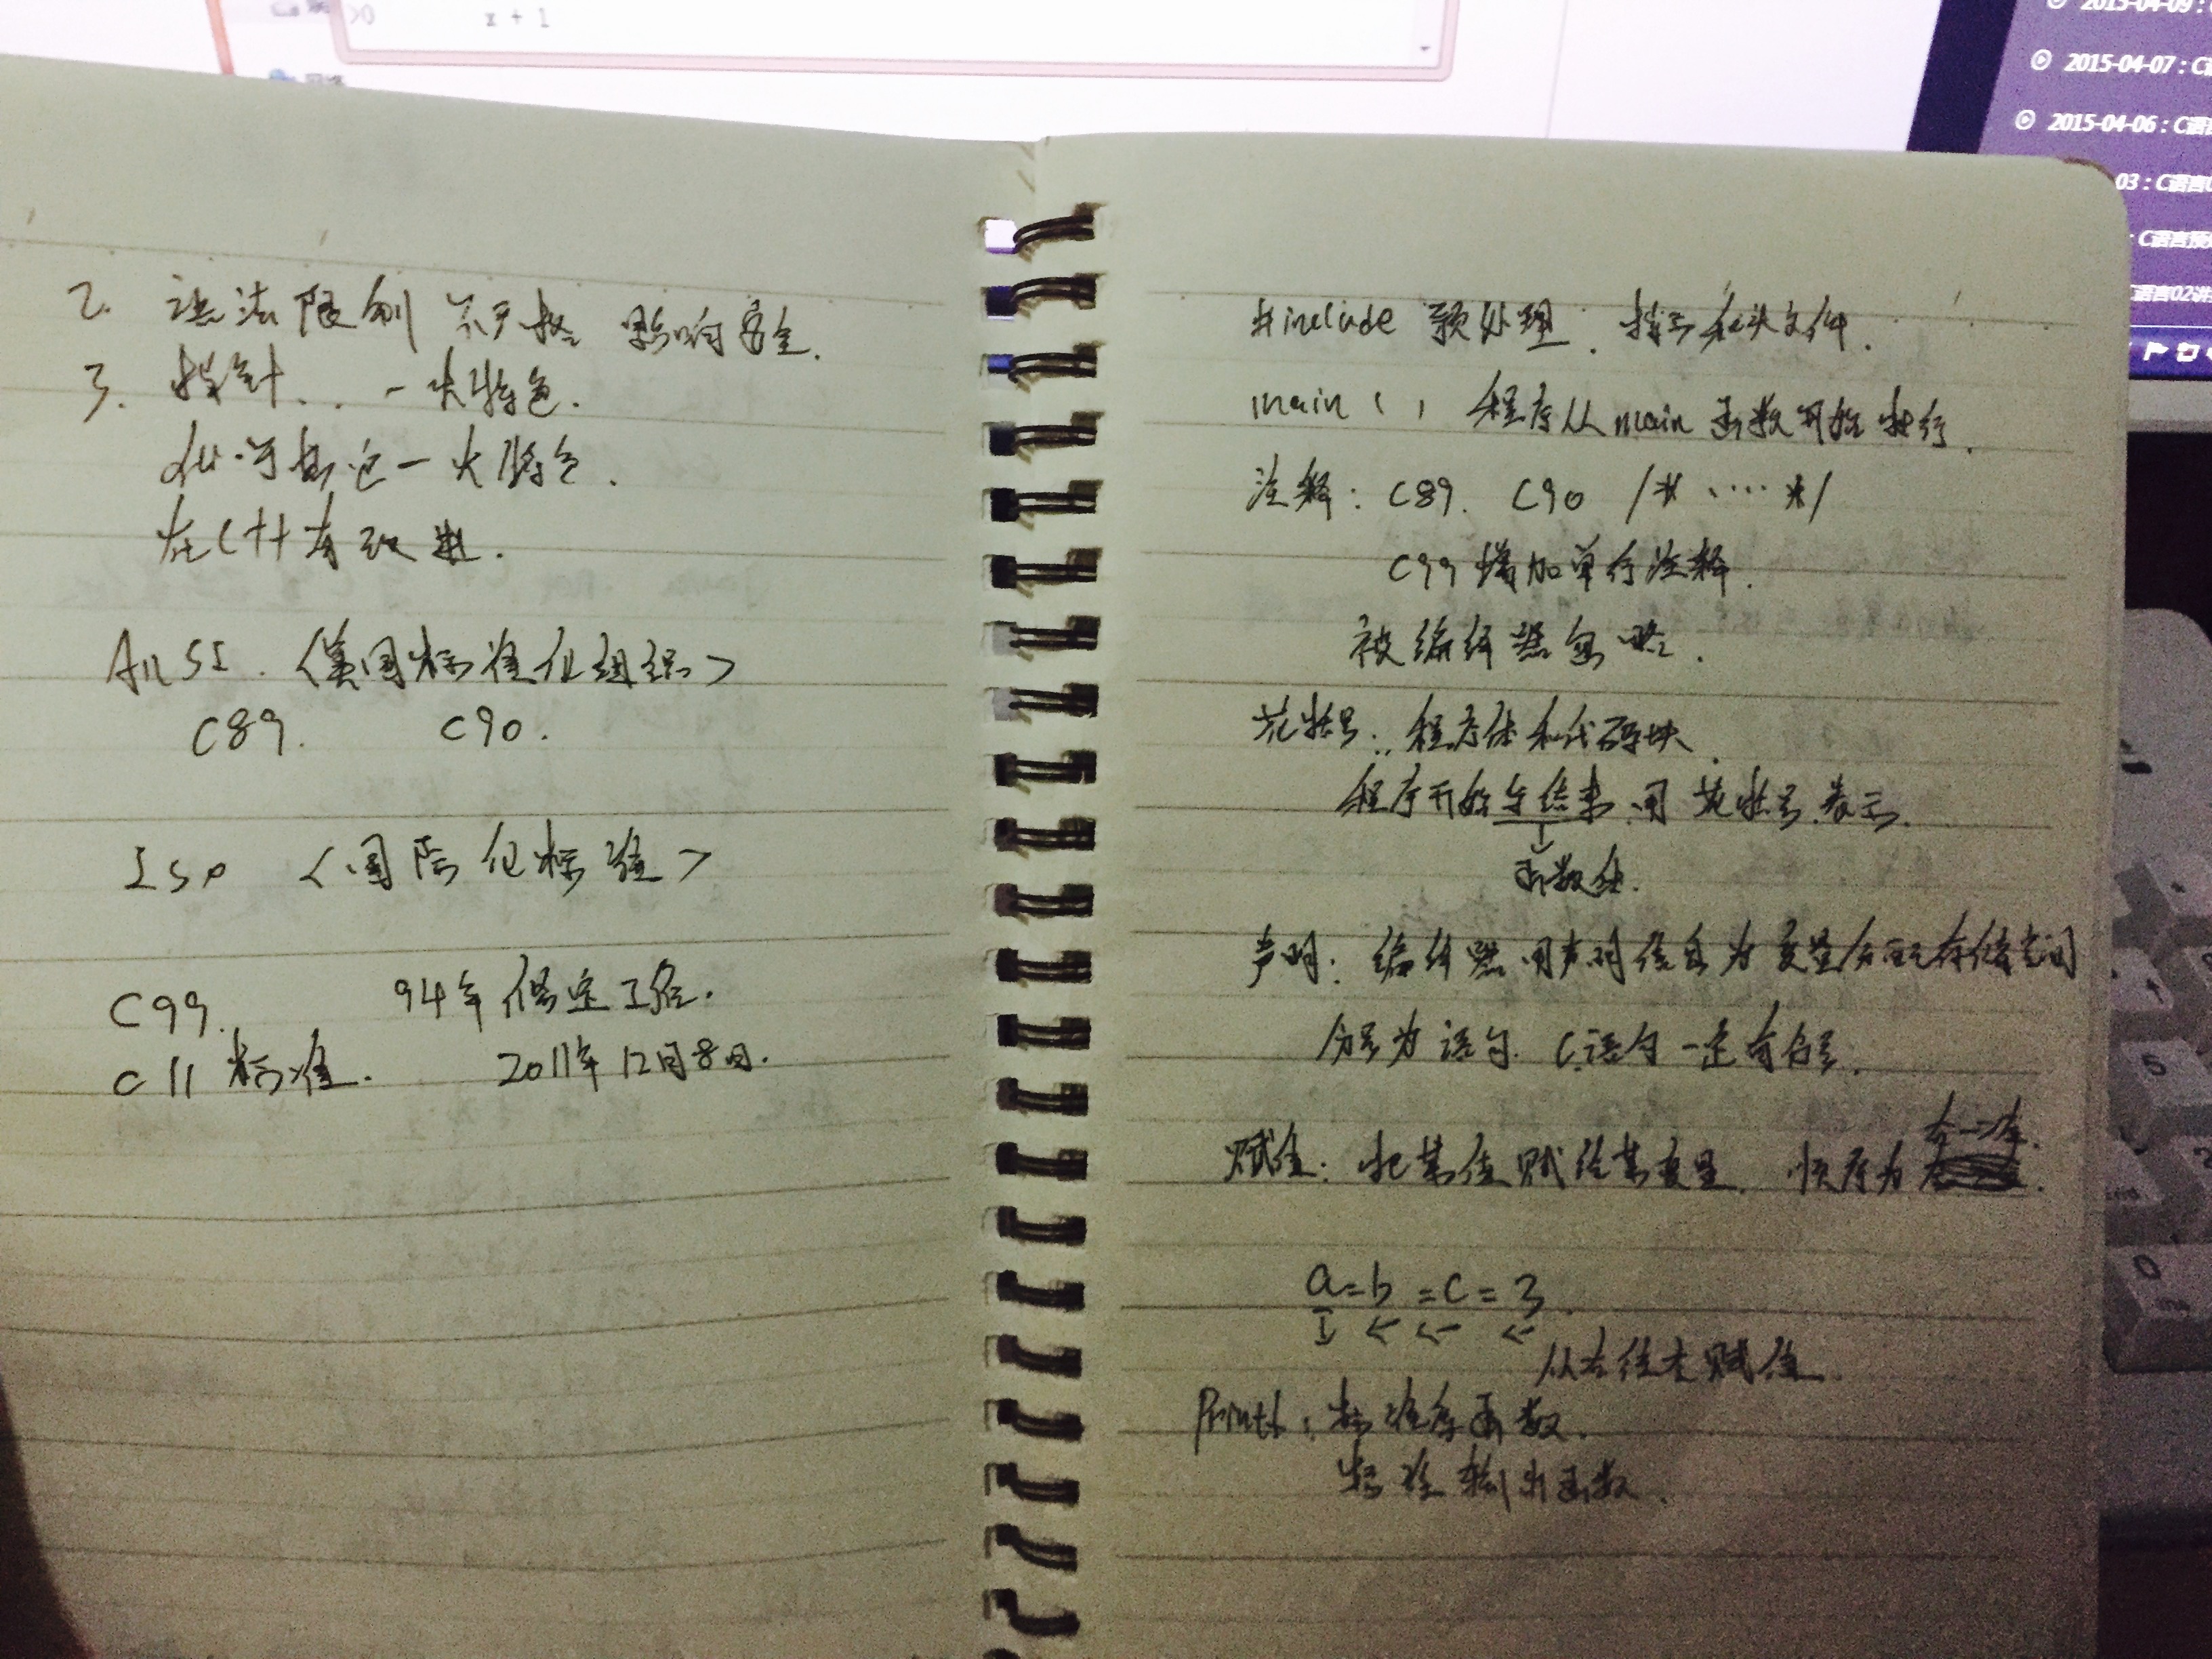 x + 1
2015-04-09 : C
2015-04-07 : C语
2015-04-06 : C语
03 : C语言0
: C语言预
C语言02讲
2. 语法限制 不严格 影响安全.
3. 指针.. 一大特色.
一大特色.
在C++有改进.
AnSI. <美国标准化组织>
C89. C90.
Iso <国际化标准>
C99. 94年修定工作.
C11 标准. 2011年12月8日.
#include 预处理. 指示 头文件.
main ( ) 程序从main函数开始执行.
注释: C89. C90 /* ····· */
C99增加单行注释.
被编译器忽略.
花括号: 程序体和代码块.
程序开始与结束 用花括号表示.
函数体.
声明: 编译器用声明信息为变量分配存储空间
分号为语句. C语句一定有分号.
赋值: 把某值赋给某变量. 顺序为
a=b=c=3.
从右往左赋值
Printf: 标准库函数.
标准输出函数.